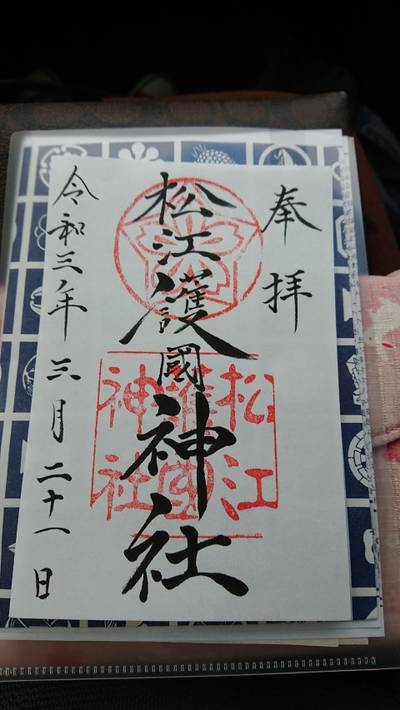 奉拝
松江護國神社
松江
護國
神社
令和三年三月二十一日